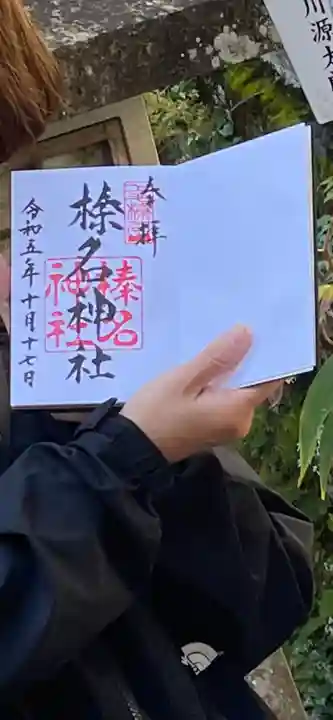 奉拝
榛名神社
榛名
神社
令和五年十月十七日
川源太